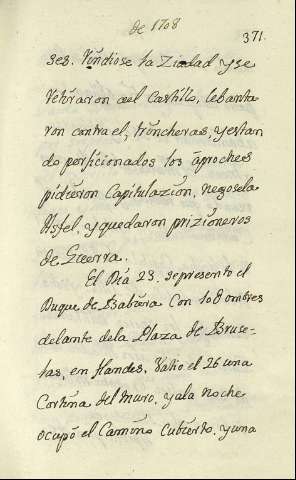 de 1708
371.
ses. Rindiose la Ziudad y se
retiraron al Castillo, lebanta
ron contra el, trincheras, y estan
do perficionados los aproches
pidieron Capitulazion, negosela
Asfel, y quedaron prizioneros
de Guerra.
El Dia 23. se presento el
Duque de Babiera Con 108 ombres
delante de la Plaza de Bruse-
las, en Flandes. Batio el 26 una
Cortina del Muro, y a la noche
ocupó el Camino Cubierto, y una